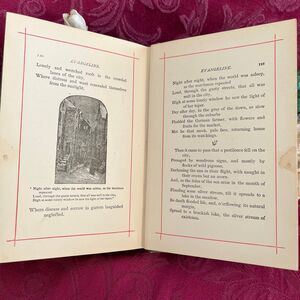 120
EVANGELINE.
Lonely and wretched roofs in the crowded
lanes of the city,
Where distress and want concealed themselves
from the sunlight,
"Night after night, when the world was asleep, as the watchman
repeated
Loud, through the gusty streets, that all was well in the city,
High at some lonely window he saw the light of her taper."
Where disease and sorrow in garrets languished
neglected.
EVANGELINE.
121
Night after night, when the world was asleep,
as the watchman repeated
Loud, through the gusty streets, that all was
well in the city,
High at some lonely window he saw the light of
her taper.
Day after day, in the gray of the dawn, as slow
through the suburbs
Plodded the German farmer, with flowers and
fruits for the market,
Met he that meek, pale face, returning home
from its watchings.
Then it came to pass that a pestilence fell on the
city,
Presaged by wondrous signs, and mostly by
flocks of wild pigeons,
Darkening the sun in their flight, with naught in
their craws but an acorn.
And, as the tides of the sea arise in the month of
September,
Flooding some silver stream, till it spreads to a
lake in the meadow,
So death flooded life, and, o'erflowing its natural
margin,
Spread to a brackish lake, the silver stream of
existence.